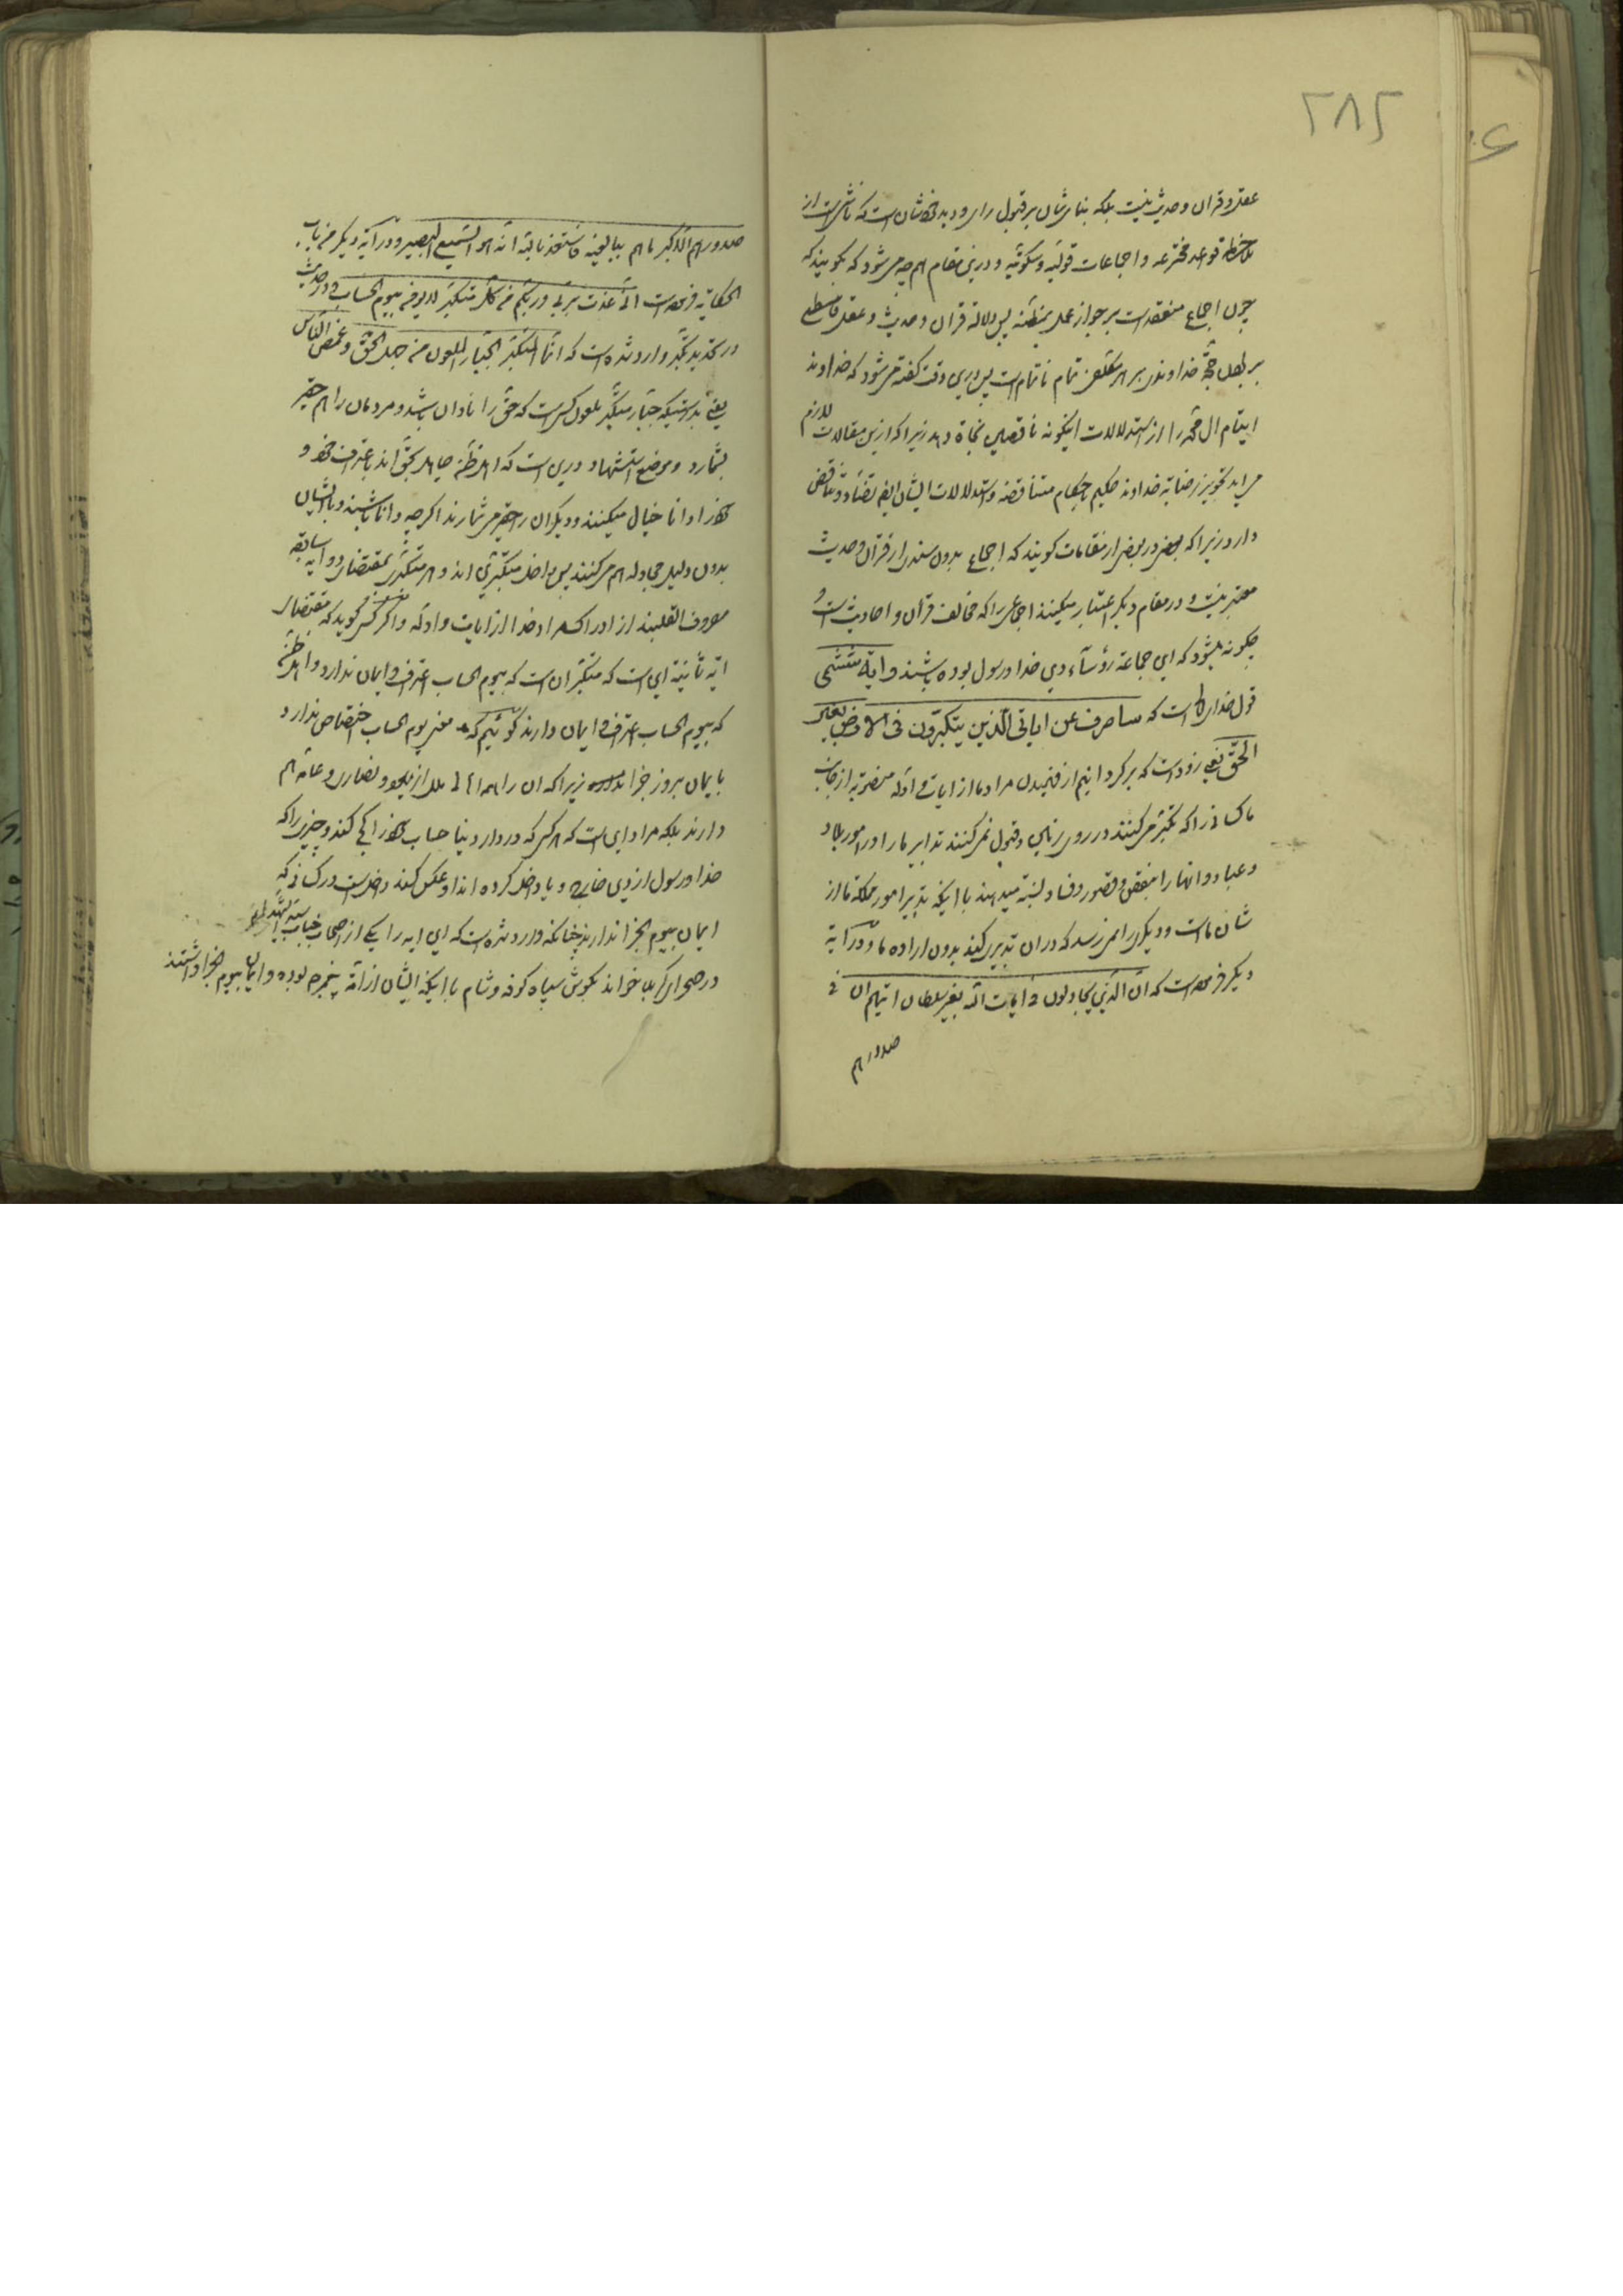 ۲۸۲
عقل و قران و حدیث نیست بلکه بنای شان بر قبول رای و دید خودشان است که ناشی است از
ملاحظه قواعد مخترعه و اجماعات قولیه و سکوتیه و درین مقام هم چه می شود که بگویند که
چون اجماع منعقد است بر جواز عمل بمظنه پس دلالة قران و حدیث و عقل قاطع
بر بطلان حجة خداوند بر هر مکلف تمام ناتمام است پس درین وقت گفته می شود که خداوند
ایتام ال محمد را از استدلالات اینگونه ناقصین نجاة دهد زیرا که ازین مقالات لازم
می اید تجویز رضایة خداوند حکیم باحکام متناقضه و استدلالات ایشان ایضا تضاد و تناقض
دارد زیرا که بعضی در بعضی از مقامات گویند که اجماع بدون سندی از قرآن و حدیث
معتبر نیست و در مقام دیگر اعتبار میکنند اجماعی را که مخالف قرآن و احادیث است و
چگونه میشود که این جماعة رؤسآء دین خدا و رسول بوده باشند و ایة
قول خداوند است که ساصرف عن ایاتی الّذین یتکبّرون فی الارض بغیر
الحقّ یعنی زود است که برگردانیم از فهمیدن مراد ما از ایات و ادله منصوبة از جانب
ما کسانی را که تکبّر می کنند در روی زمین و قبول نمی کنند تدابیر ما را در امور بلاد
و عباد و انها را بنقص و قصور و فساد نسبة میدهند با اینکه تدبیر امور مملکة ما از
شان ماست و دیگری را نمی رسد که در ان تدبیری کند بدون اراده ما و در آیة
دیگر فرموده است که انّ الّذین یجادلون فی ایات الله بغیر سلطان اتیهم ان فی
صدورهم
صدورهم الّا کبر ما هم ببالغیه فاستعذ بالله انّه هو السّمیع البصیر و در آیة دیگر من باب
الحکایة فرموده است انّی عذت بربّی و ربّکم من کلّ متکبّر لا یؤمن بیوم الحساب و در حدیث
در تحدید تکبّر وارد شده است که انّما المتکبّر الجبّار الملعون من جهل الحقّ و غمص الناس
یعنی بدرستیکه جبّار متکبّر ملعون کسی است که حقّ را نادان باشد و مردمان را هم حقیر
بشمارد و موضع استشهاد درین است که اهل ظنّه جاهل بحقّ اند باعتراف خود و
خود را دانا خیال میکنند و دیگران را حقیر می شمارند اگر چه دانا باشند و با ایشان
بدون دلیل مجادله هم می کنند پس داخل متکبّرین اند و هر متکبّری بمقتضای دو ایه سابقه
مصروف القلبند از ادراک مراد خدا از ایات و ادلّه و اگر کسی گوید که مقتضای
ایه ثانیة این است که متکبّر ان است که بیوم الحساب اعتراف و ایمان ندارد و اهل ظنّه
که بیوم الحساب اعتراف و ایمان دارند گوئیم که معنی یوم الحساب اختصاص ندارد
بایمان بروز جزا زیرا که ان را همه اهالی ملل از یهود و نصاری و عامّه هم
دارند بلکه مراد این است که هر کس که در دار دنیا حساب خود را کج کند و چیزی را که
خدا و رسول از دین خارج و یا داخل کرده اند او عکس کند داخل است در کسانی که
ایمان بیوم الجزا ندارند چنانکه وارد شده است که این ایه را یکی از اصحاب جناب سیّد الشهداء
در صحرای کربلا خواند بگوش سپاه کوفه و شام با اینکه ایشان از امّة پیغمبر هم بوده و ایمان بیوم الجزا داشتند